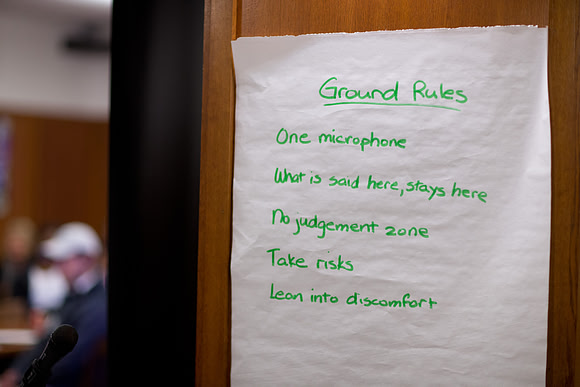 Ground Rules
One microphone
What is said here, stays here
No judgement zone
Take risks
Lean into discomfort